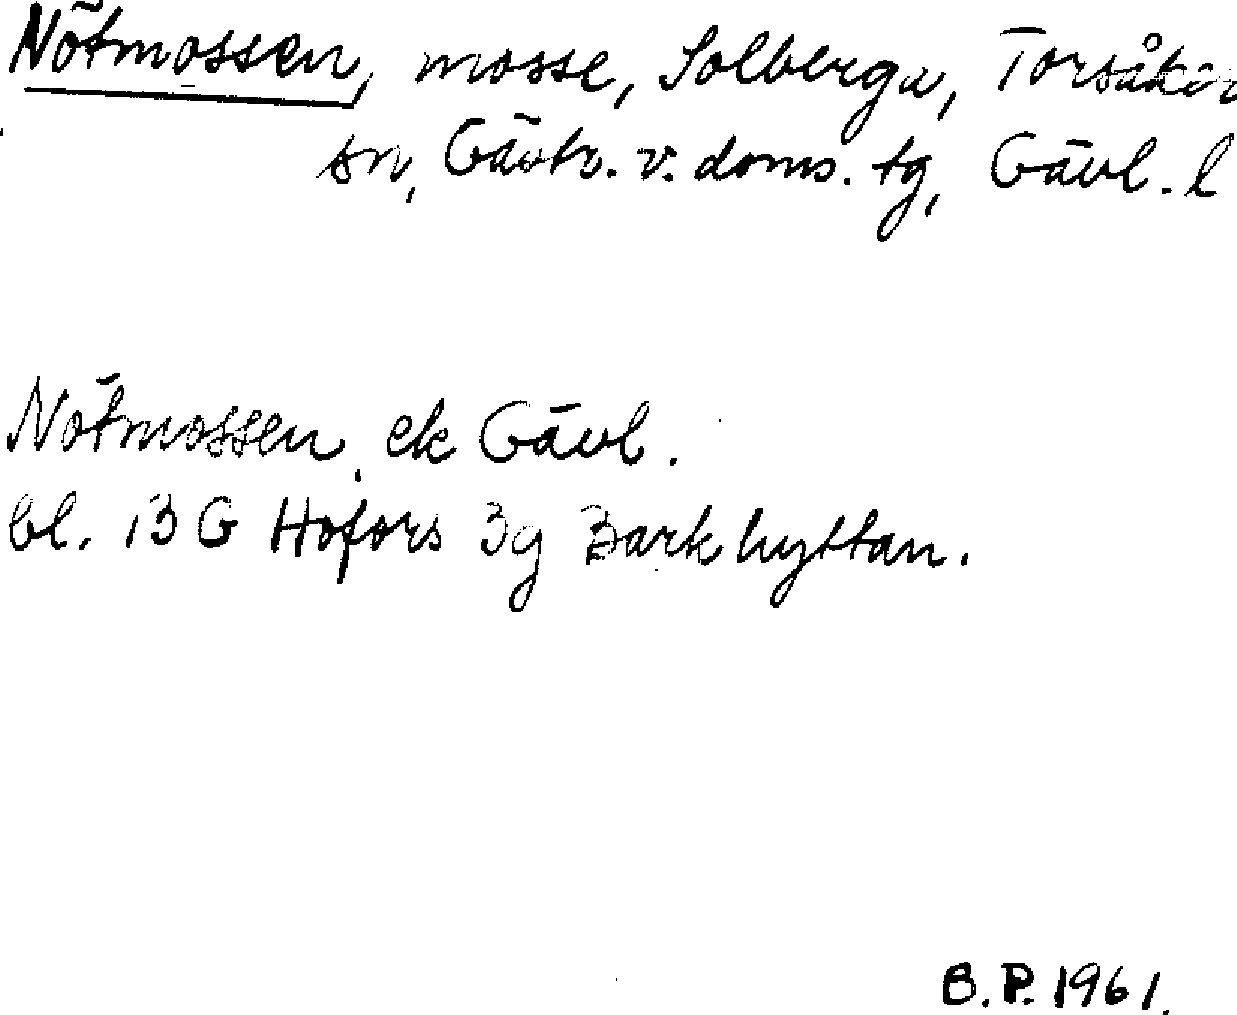 Nötmossen, mosse, Solberga, Torsåker
sn, Gästr. v. doms. tg, Gävl. l
Nötmossen, ek Gävl.
bl. 13 G Hofors 3g Barkhyttan.
B.P. 1961.